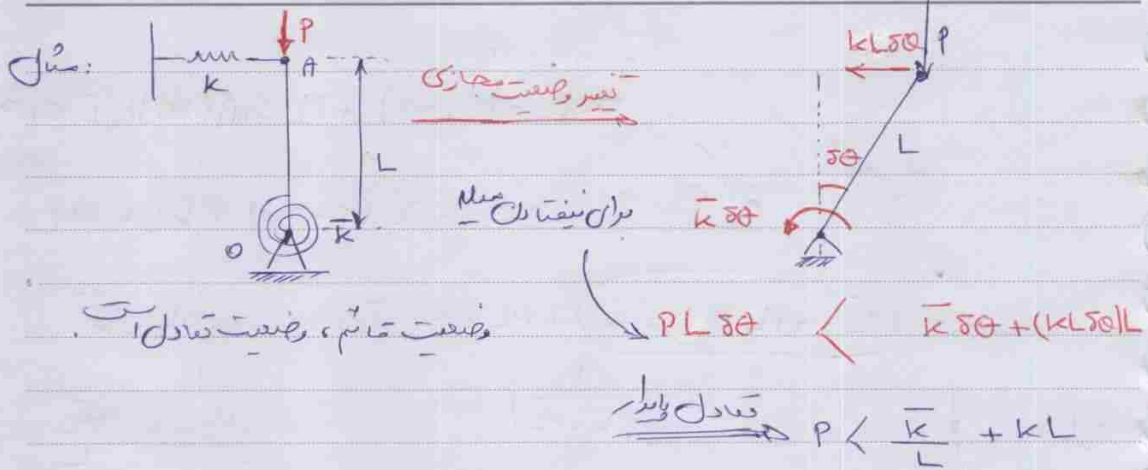 مثال:
P
k
A
L
O
k̄
تغییر وضعیت مجازی
kLδθ
P
δθ
L
k̄ δθ
برای نیفتادن میله
وضعیت قائم، وضعیت تعادل است.
PL δθ < k̄ δθ + (kL δθ)L
تعادل پایدار
P < k̄/L + kL